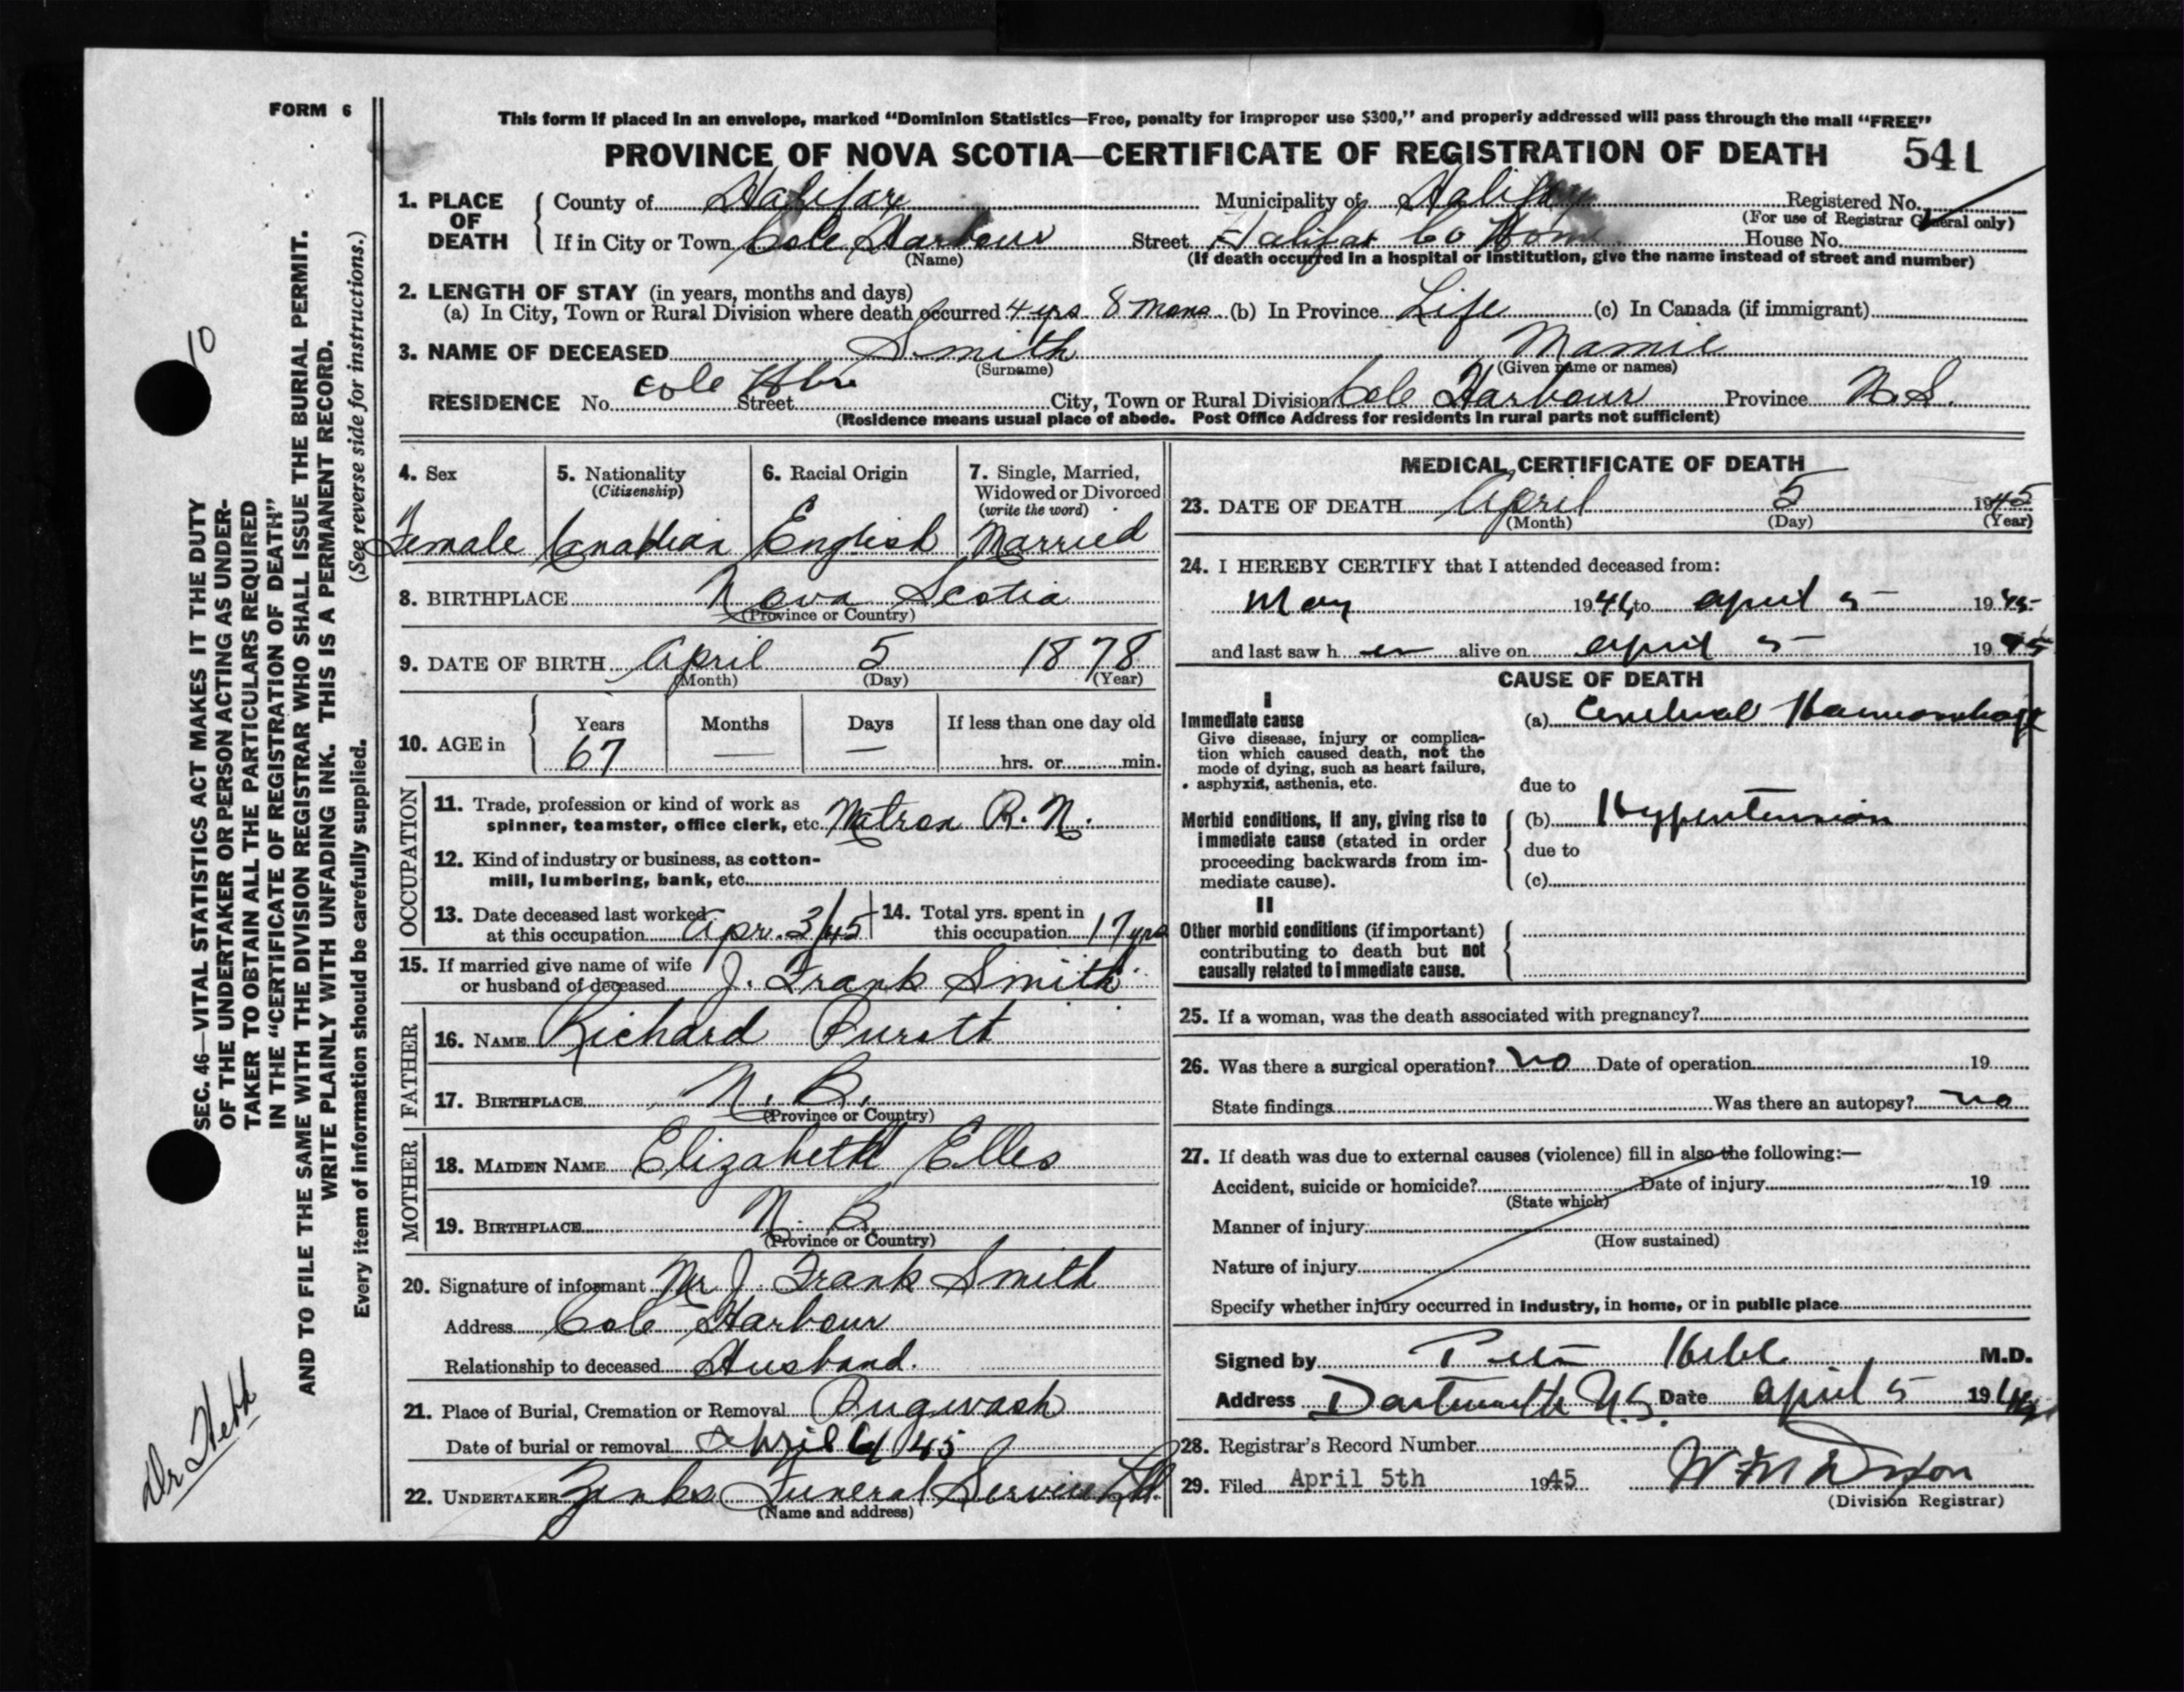 FORM 6
This form if placed in an envelope, marked “Dominion Statistics—Free, penalty for improper use $300,” and properly addressed will pass through the mail “FREE”
PROVINCE OF NOVA SCOTIA—CERTIFICATE OF REGISTRATION OF DEATH 541
1. PLACE OF DEATH
County of Halifax Municipality of Halifax Registered No.
(For use of Registrar General only)
If in City or Town Cole Harbour Street Halifax Co Home House No.
(Name) (If death occurred in a hospital or institution, give the name instead of street and number)
2. LENGTH OF STAY (in years, months and days)
(a) In City, Town or Rural Division where death occurred 4 yrs 8 mons (b) In Province Life (c) In Canada (if immigrant)
3. NAME OF DECEASED Smith Mamie
(Surname) (Given name or names)
RESIDENCE No. Cole Hbr Street City, Town or Rural Division Cole Harbour Province N.S.
(Residence means usual place of abode. Post Office Address for residents in rural parts not sufficient)
4. Sex
Female
5. Nationality
(Citizenship)
Canadian
6. Racial Origin
English
7. Single, Married,
Widowed or Divorced
(write the word)
Married
8. BIRTHPLACE Nova Scotia
(Province or Country)
9. DATE OF BIRTH April 5 1878
(Month) (Day) (Year)
10. AGE in
Years Months Days If less than one day old
67 — — hrs. or min.
OCCUPATION
11. Trade, profession or kind of work as
spinner, teamster, office clerk, etc. Matron R.N.
12. Kind of industry or business, as cotton-
mill, lumbering, bank, etc.
13. Date deceased last worked
at this occupation Apr. 3/45
14. Total yrs. spent in
this occupation 17 yrs
15. If married give name of wife
or husband of deceased J. Frank Smith
FATHER
16. NAME Richard
17. BIRTHPLACE N. B.
(Province or Country)
MOTHER
18. MAIDEN NAME Elizabeth Elles
19. BIRTHPLACE N. B.
(Province or Country)
20. Signature of informant Mr J. Frank Smith
Address Cole Harbour
Relationship to deceased Husband.
21. Place of Burial, Cremation or Removal Pugwash
Date of burial or removal April 45
22. UNDERTAKER Zinks Funeral Service Ltd.
(Name and address)
MEDICAL CERTIFICATE OF DEATH
23. DATE OF DEATH April 5 1945
(Month) (Day) (Year)
24. I HEREBY CERTIFY that I attended deceased from:
May 19 to April 5 1945
and last saw h er alive on April 5 1945
CAUSE OF DEATH
I
Immediate cause
Give disease, injury or complica-
tion which caused death, not the
mode of dying, such as heart failure,
asphyxia, asthenia, etc.
(a) Cerebral Haemorrhage
due to
Morbid conditions, if any, giving rise to
immediate cause (stated in order
proceeding backwards from im-
mediate cause).
(b) Hypertension
due to
(c)
II
Other morbid conditions (if important)
contributing to death but not
causally related to immediate cause.
25. If a woman, was the death associated with pregnancy?
26. Was there a surgical operation? no Date of operation 19
State findings Was there an autopsy? no
27. If death was due to external causes (violence) fill in also the following:—
Accident, suicide or homicide? Date of injury 19
(State which)
Manner of injury
(How sustained)
Nature of injury
Specify whether injury occurred in industry, in home, or in public place
Signed by Hebb M.D.
Address Dartmouth N.S. Date April 5 19
28. Registrar's Record Number
29. Filed April 5th 1945 W M Dixon
(Division Registrar)
SEC. 46—VITAL STATISTICS ACT MAKES IT THE DUTY
OF THE UNDERTAKER OR PERSON ACTING AS UNDER-
TAKER TO OBTAIN ALL THE PARTICULARS REQUIRED
IN THE “CERTIFICATE OF REGISTRATION OF DEATH”
AND TO FILE THE SAME WITH THE DIVISION REGISTRAR WHO SHALL ISSUE THE BURIAL PERMIT.
WRITE PLAINLY WITH UNFADING INK. THIS IS A PERMANENT RECORD.
Every item of information should be carefully supplied. (See reverse side for instructions.)
10
Dr Hebb